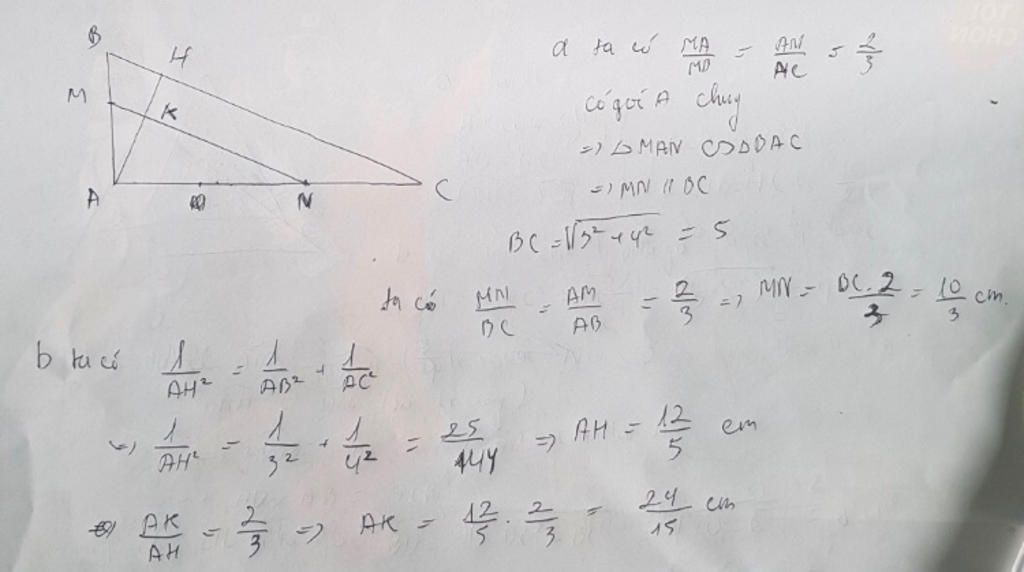 B
H
M
K
A
N
C
a ta có MA/MB = AN/AC = 2/3
có góc A chug
=> △MAN ∽ △BAC
=> MN // BC
BC = √(3² + 4²) = 5
ta có MN/BC = AM/AB = 2/3 => MN = BC.2/3 = 10/3 cm.
b ta có 1/AH² = 1/AB² + 1/AC²
=> 1/AH² = 1/3² + 1/4² = 25/144 => AH = 12/5 cm
=> AK/AH = 2/3 => AK = 12/5 . 2/3 = 24/15 cm